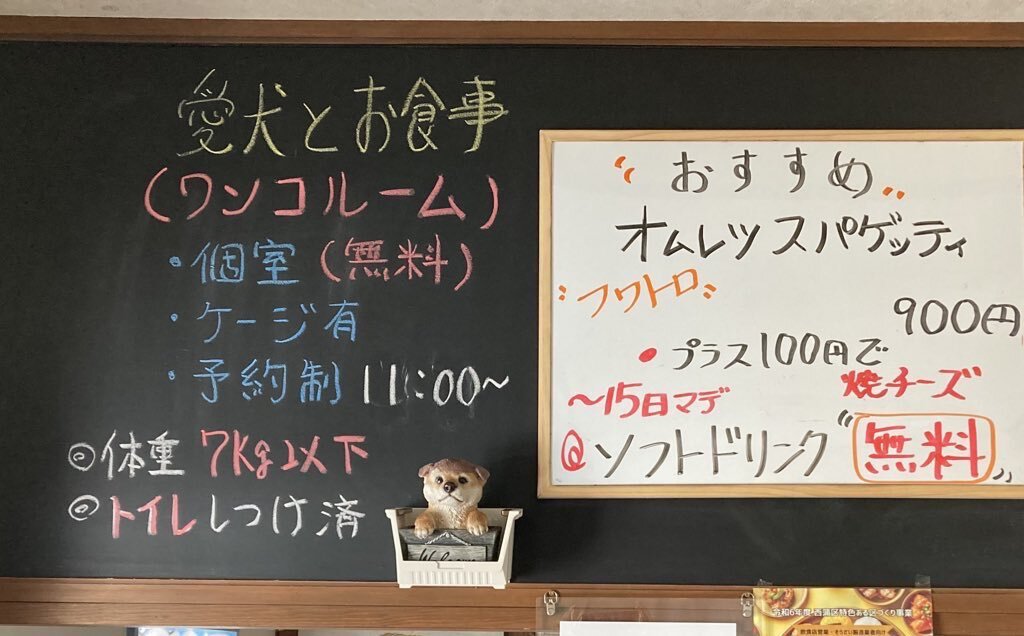 愛犬とお食事
(ワンコルーム)
・個室(無料)
・ケージ有
・予約制 11:00~
◎体重 7Kg以下
◎トイレしつけ済
Welcome
おすすめ
オムレツスパゲッティ
フワトロ
900円
●プラス100円で
焼チーズ
~15日マデ
◎ソフトドリンク"無料"
令和6年度 西蒲区特色ある区づくり事業
飲食店営業・そうざい製造業者向け